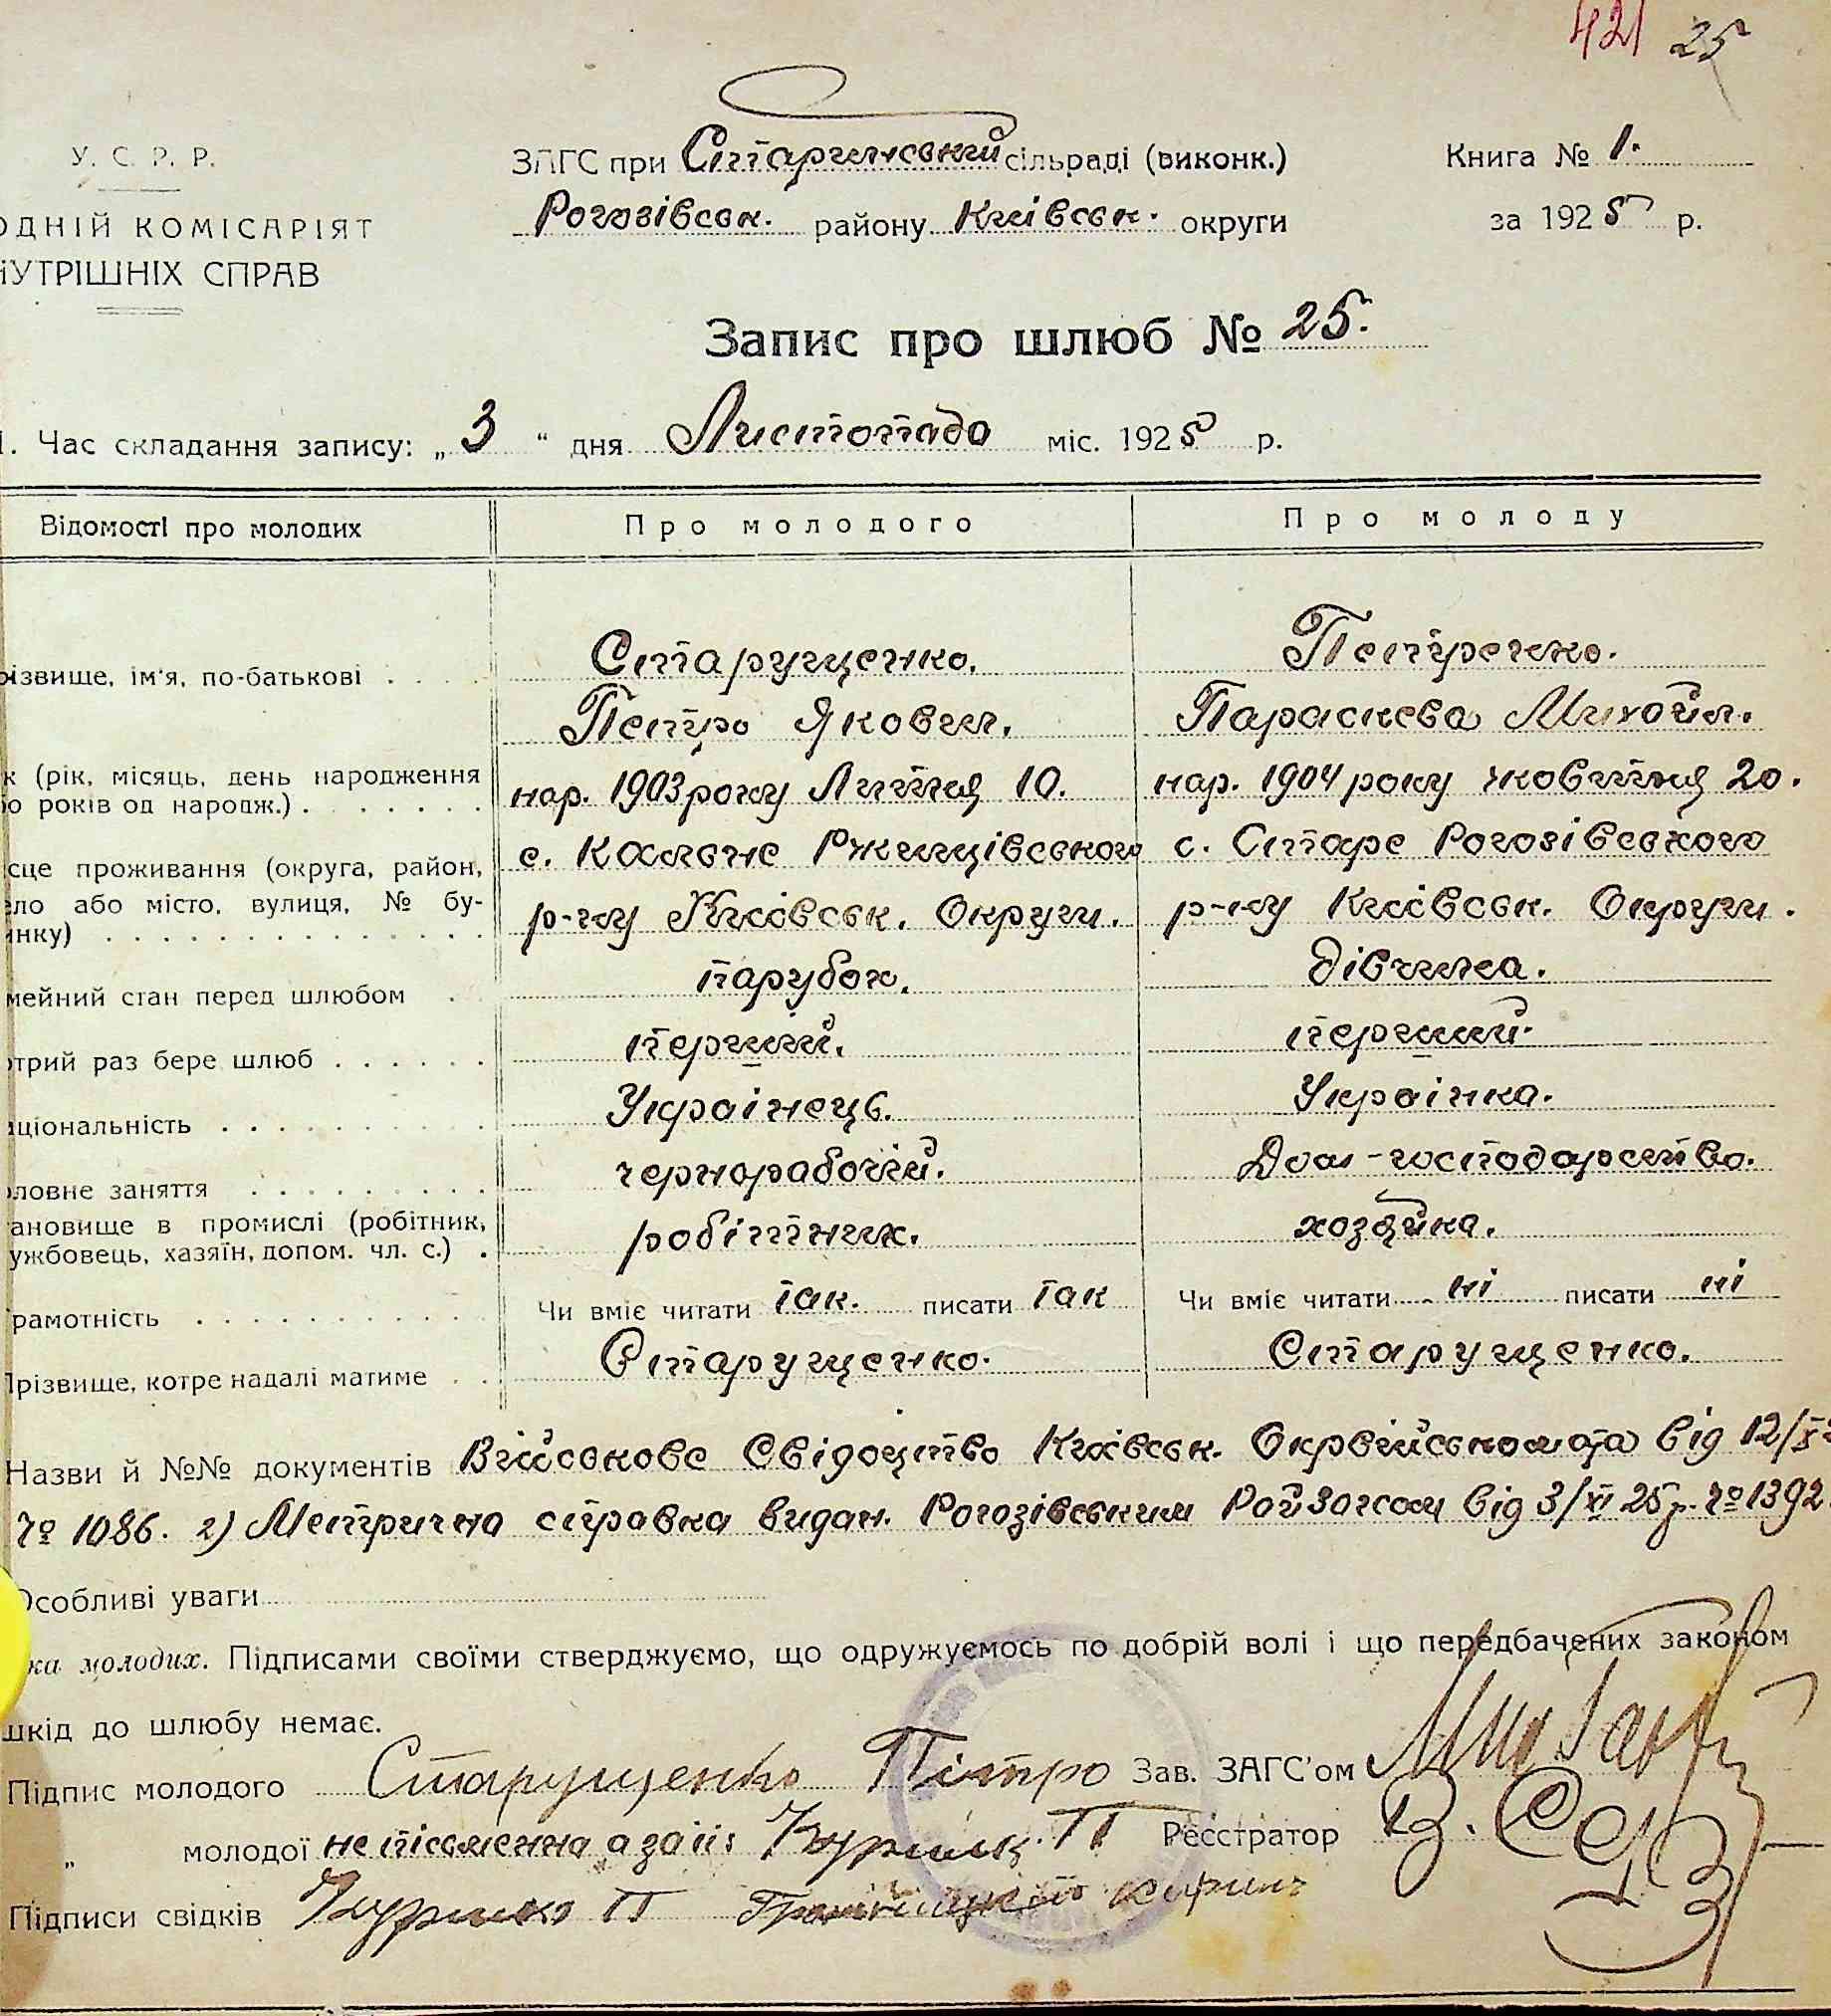 421 25
У. С. Р. Р.
ОДНІЙ КОМІСАРІЯТ
НУТРІШНІХ СПРАВ
ЗАГС при Старинський сільраді (виконк.)
Рогозівськ. району Київськ. округи
Книга № 1.
за 1925 р.
Запис про шлюб № 25.
1. Час складання запису: „ 3 “ дня Листопада міс. 1925 р.
Відомості про молодих Про молодого Про молоду
різвище, ім'я, по-батькові . . . . Старущенко. Петренко.
Петро Яковл. Параскева Михайл.
к (рік, місяць, день народження нар. 1903 року Липня 10. нар. 1904 року жовтня 20.
о років од народж.) . . . . . . .
сце проживання (округа, район, с. Кальне Ржищівського с. Старе Рогозівського
ело або місто, вулиця, № бу- р-ну Київськ. Округи. р-ну Київськ. Округи.
инку) . . . . . . . . . . . . . . .
мейний стан перед шлюбом . парубок. дівчина.
отрий раз бере шлюб . . . . . . перший. перший.
ціональність . . . . . . . . . . Українець. Українка.
оловне заняття . . . . . . . . . чернорабочій. Дом-господарство.
ановище в промислі (робітник, робітник. хозяйка.
ужбовець, хазяїн, допом. чл. с.) .
рамотність . . . . . . . . . . . Чи вміє читати так. писати так Чи вміє читати ні писати ні
Прізвище, котре надалі матиме . . Старущенко. Старущенко.
Назви й №№ документів Військове Свідоцтво Київськ. Окрвійськомата від 12/X
№ 1086. 2) Метрична справка видан. Рогозівським Райзагсом від 3/XI 25 р. № 1392
Особливі уваги
ка молодих. Підписами своїми стверджуємо, що одружуємось по добрій волі і що передбачених законом
шкід до шлюбу немає.
Підпис молодого Старущенко Пітро Зав. ЗАГС'ом
„ молодої не пісьменна а за її П Реєстратор
Підписи свідків П